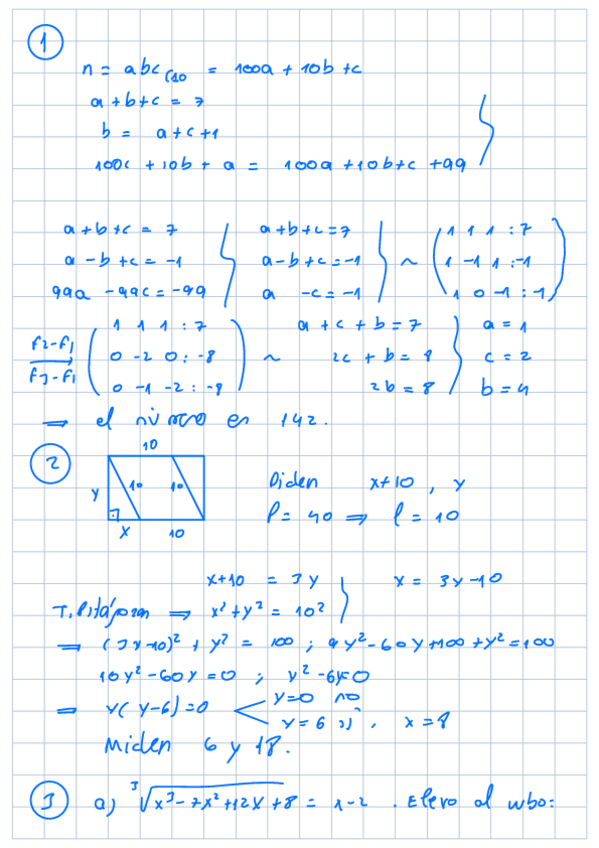 1
n = abc (10 = 100a + 10b + c
a + b + c = 7
b = a + c + 1
100c + 10b + a = 100a + 10b + c + 99
a + b + c = 7 } a + b + c = 7 } ~ ( 1 1 1 : 7
a - b + c = -1 a - b + c = -1 1 -1 1 : -1
99a - 99c = -99 a - c = -1 1 0 -1 : -1 )
F2-F1 ( 1 1 1 : 7 a + c + b = 7 } a = 1
F3-F1 0 -2 0 : -8 ~ 2c + b = 8 c = 2
0 -1 -2 : -8 ) 2b = 8 b = 4
⇒ el número es 142.
2
10
y 10 10 Piden x+10 , y
x 10 P = 40 ⇒ l = 10
x+10 = 3y } x = 3y-10
T. Pitágoras ⇒ x² + y² = 10²
⇒ (3y-10)² + y² = 100 ; 9y² - 60y + 100 + y² = 100
10y² - 60y = 0 ; y² - 6y = 0
⇒ y(y-6) = 0 < y = 0 no
y = 6 sí , x = 8
Miden 6 y 18.
3 a) ³√x³ - 7x² + 12x + 8 = x-2 . Elevo al cubo: